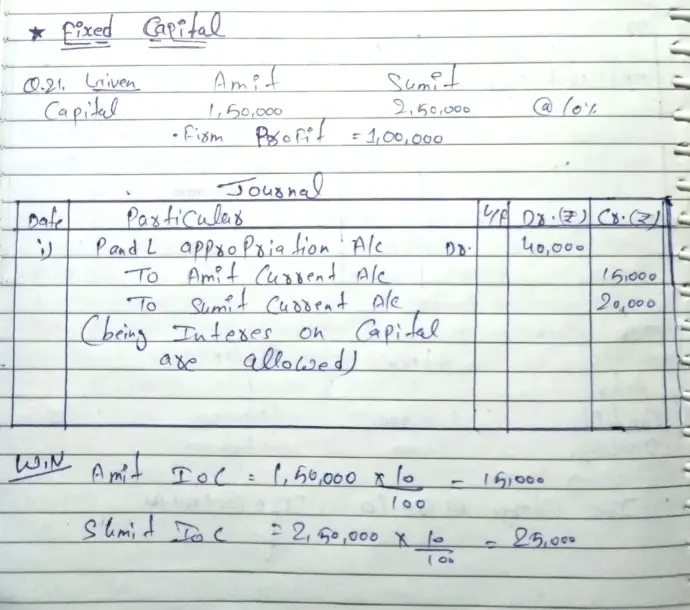 * Fixed Capital
Q.21. Given Amit Sumit
Capital 1,50,000 2,50,000 @ 10%
• Firm Profit = 1,00,000
Journal
Date Particular L/F Dr.(₹) Cr.(₹)
i) P and L appropriation A/c Dr. 40,000
To Amit Current A/c 15,000
To Sumit Current A/c 20,000
(being Interes on Capital
are allowed)
W.N Amit IOC = 1,50,000 x 10/100 = 15,000
Sumit IOC = 2,50,000 x 10/100 = 25,000